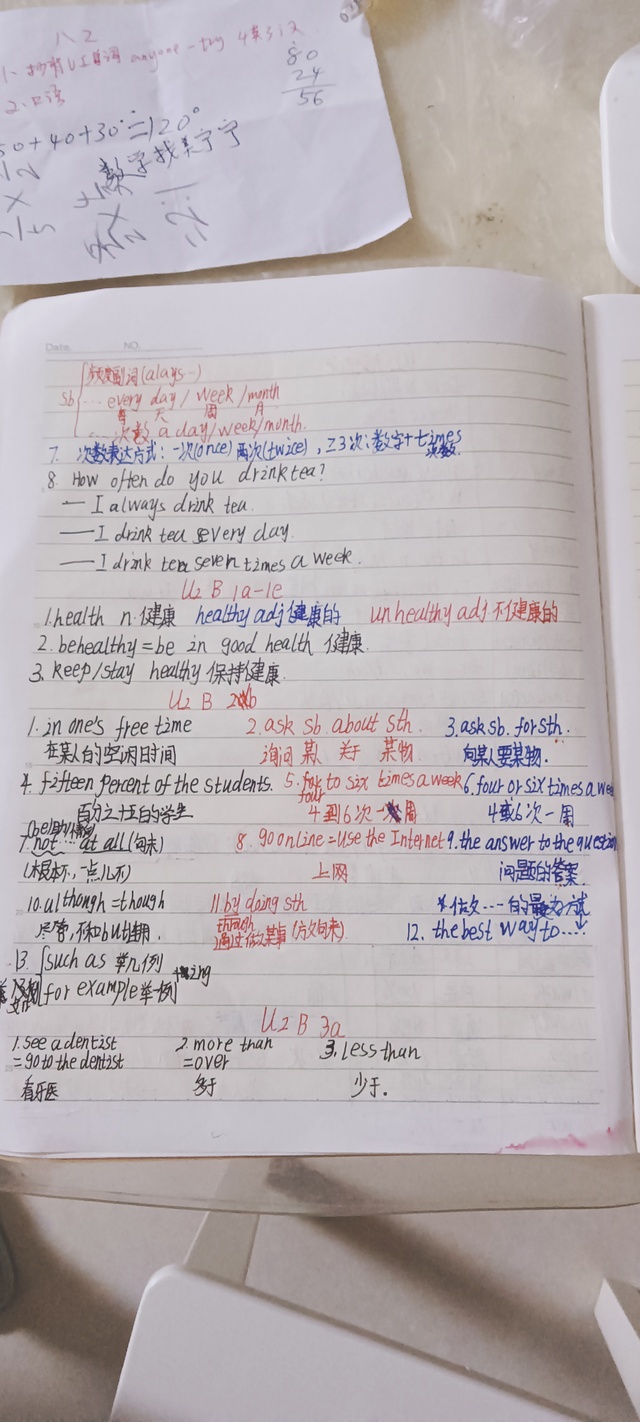 八2
1、抄背U1单词 anyone-try 4英3汉
2、口语
80
24
56
50+40+30=120°
数学找美宁宁
Date. NO.
频度副词(alays…)
sb … every day / week /month
每 天 周 月
… 次数, a day/week/month.
7. 次数表达方式: 一次(once) 两次(twice), ≥3次: 数字+times
次数.
8. How often do you drink tea?
— I always drink tea.
— I drink tea every day.
— I drink tea seven times a week.
U2 B 1a-1e
1. health n. 健康 healthy adj 健康的 unhealthy adj 不健康的
2. be healthy = be in good health 健康.
3. keep/stay healthy 保持健康.
U2 B 2b
1. in one's free time 2. ask sb about sth. 3. ask sb. for sth.
在某人的空闲时间 询问 某人 关于 某物. 向某人要某物.
4. fifteen percent of the students. 5. four to six times a week 6. four or six times a wee
百分之十五的学生 4到6次一周 4或6次一周
7. not … at all (句末) 8. go online = use the Internet 9. the answer to the question
(根本不, 一点儿不) 上网 问题的答案.
10. although = though 11. by doing sth *做某…的最好方式
尽管, 不和but连用. through 12. the best way to …
通过做某事(方式回来).
13. such as 举几例
for example 举一例 +ing
U2 B 3a
1. see a dentist 2. more than 3. less than
= go to the dentist = over
看牙医 多于 少于.